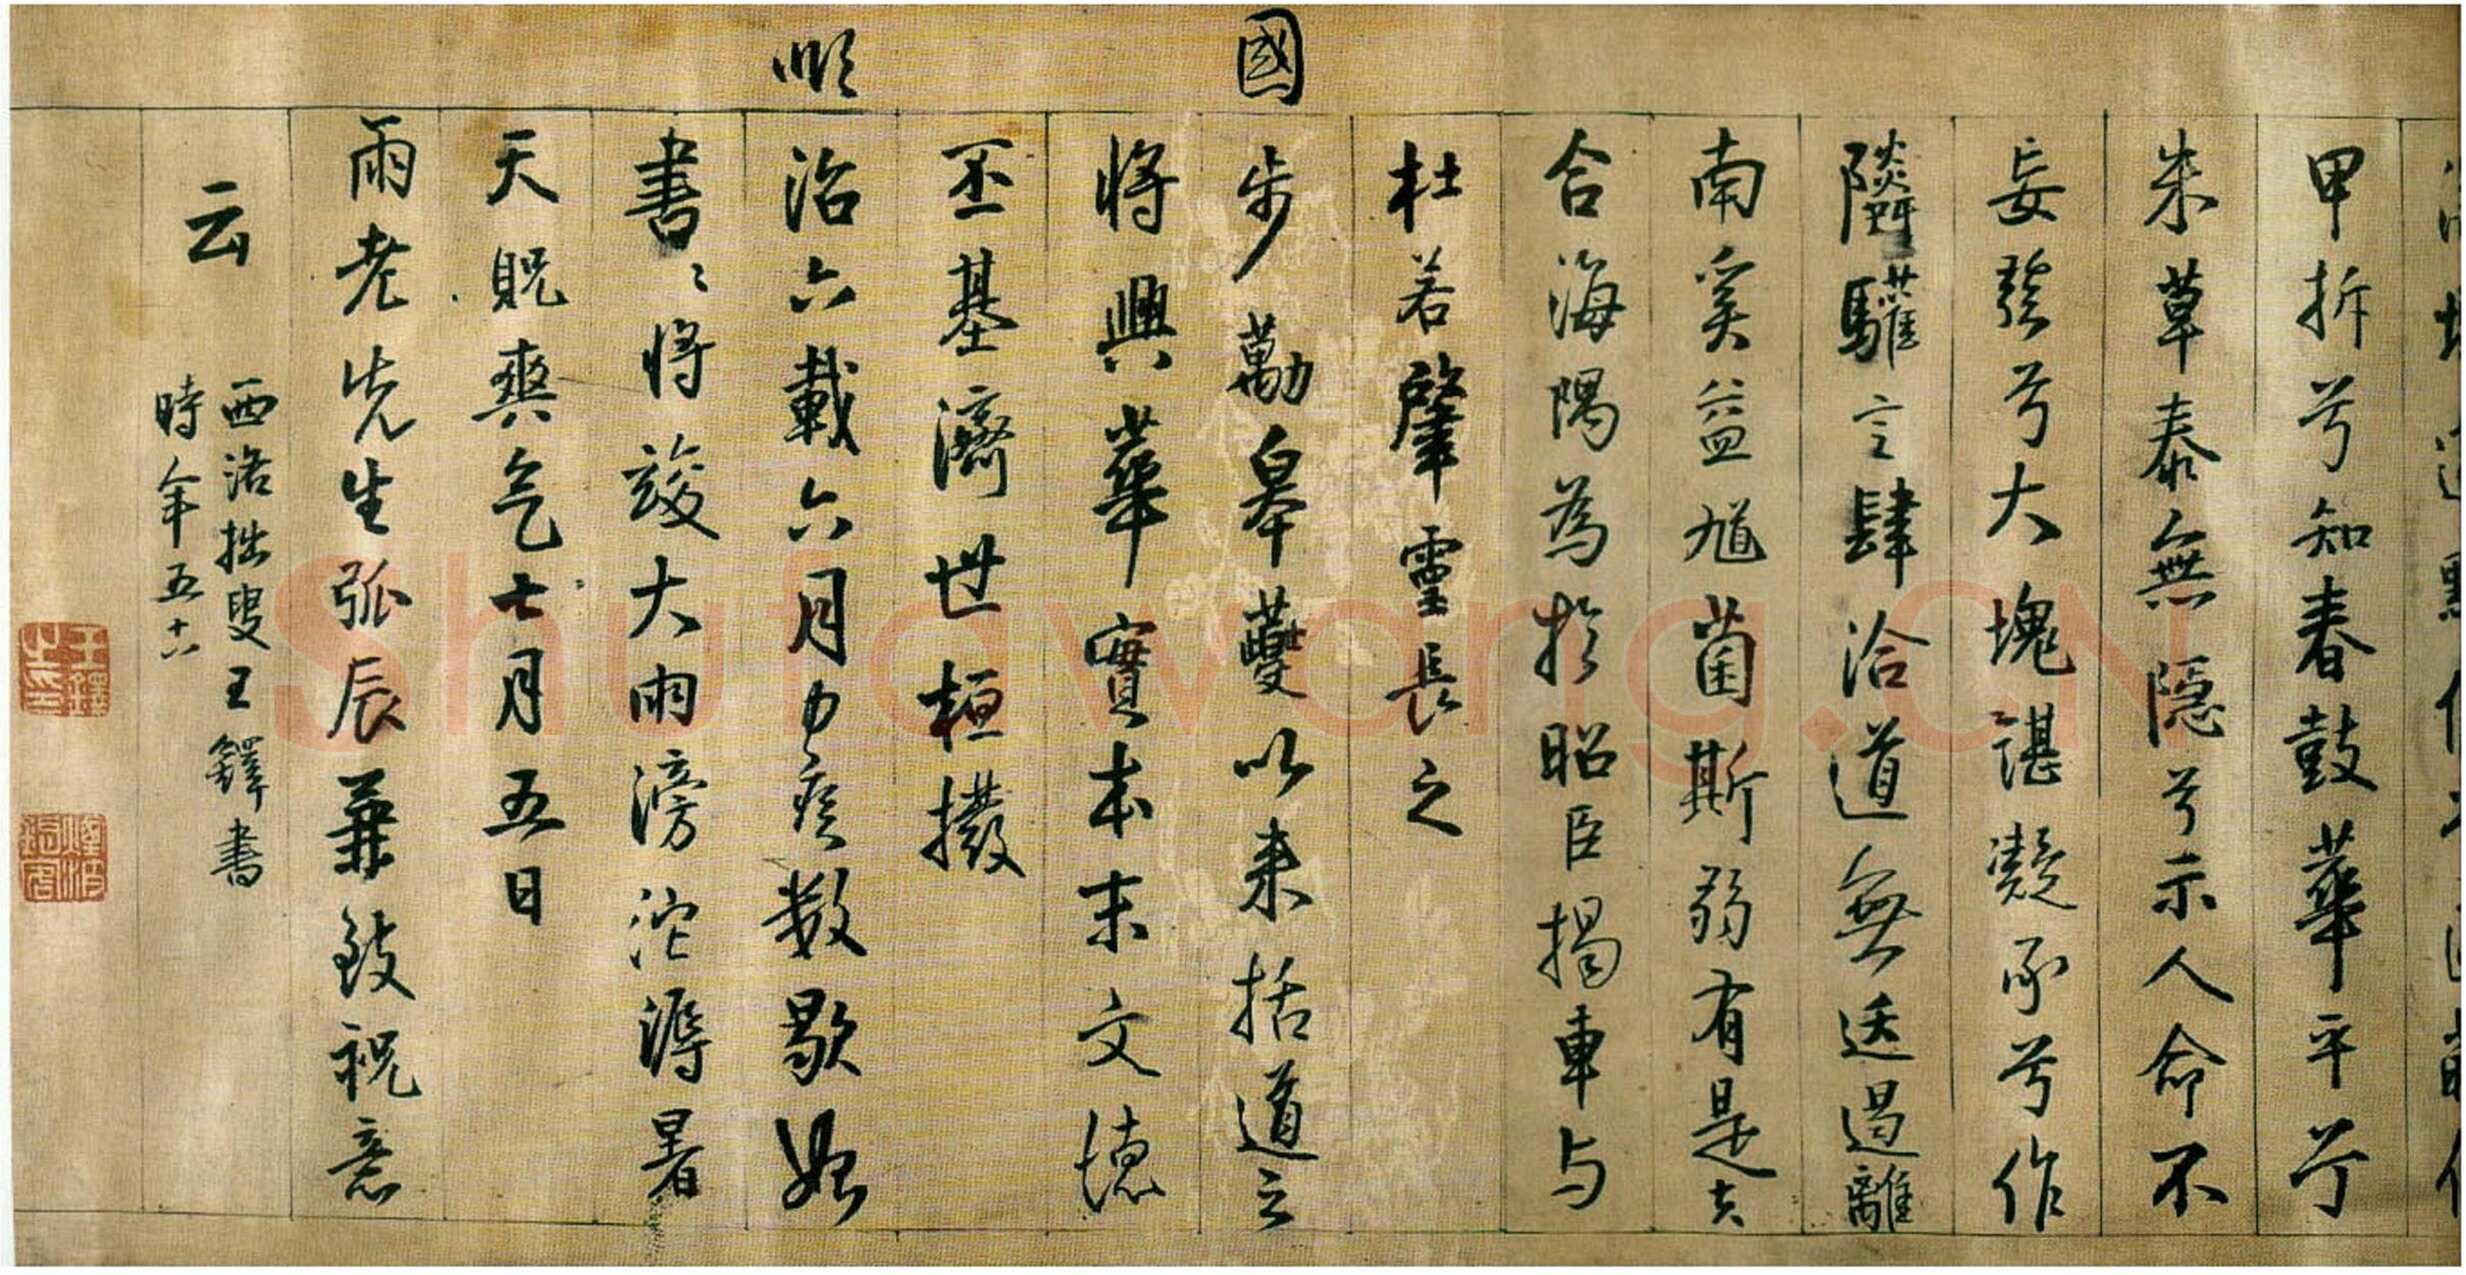 甲拆兮知春鼓華平兮
朱草泰無隱兮示人命不
妄發兮大塊諶凝承兮作
驩言肆洽道無遠遏離
南奚益馗菌斯弱有是夫
合海隅為於昭臣揭車与
杜若肇靈長之
國步勱皋夔以来括道云
將興華實本末文德
丕基濟世桓撥
順治六載六月力疾数歇始
書書將竣大雨滂沱溽暑
天貺爽气七月五日
雨老先生弧辰兼致祝意
云
西洛拙叟王鐸書
時年五十八
王鐸之印
Shufawang.CN